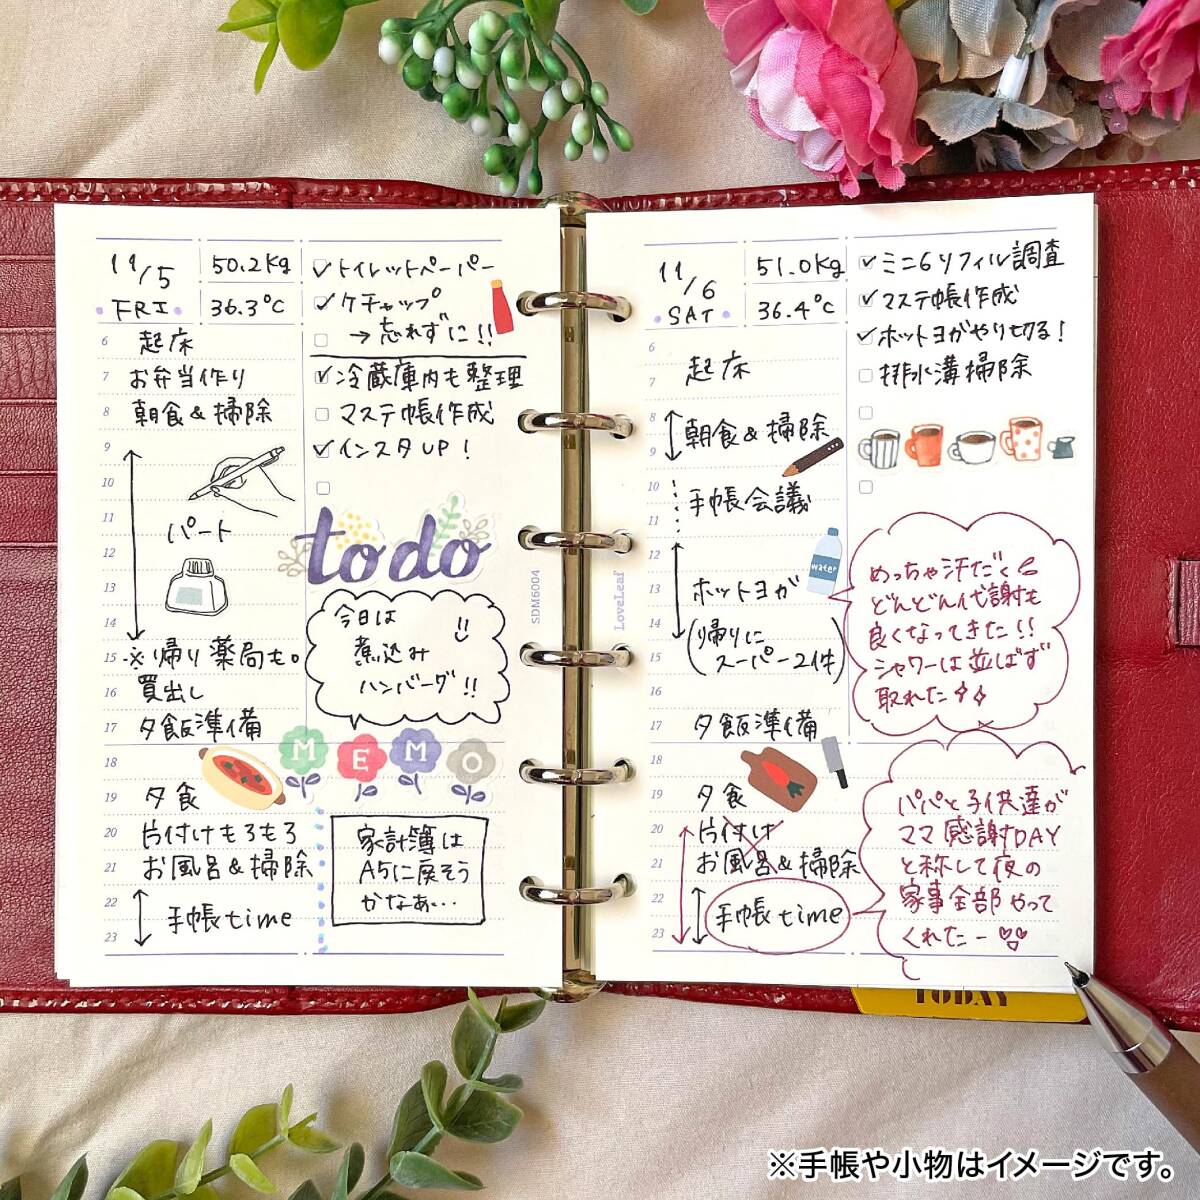 11/5
FRI
50.2Kg
36.3°C
トイレットペーパー
ケチャップ
→忘れずに!!
冷蔵庫内も整理
マステ帳作成
インスタUP!
6 起床
7 お弁当作り
8 朝食&掃除
9
10
11 パート
12
13
14
15 ※帰り薬局も。
16 買出し
17 夕飯準備
18
19 夕食
20 片付けもろもろ
21 お風呂&掃除
22 手帳time
23
todo
今日は
煮込み
ハンバーグ!!
MEMO
家計簿は
A5に戻そう
かなぁ…
SDM6004
LoveLeaf
11/6
SAT
51.0Kg
36.4°C
ミニ6リフィル調査
マステ帳作成
ホットヨガやり切る!
排水溝掃除
6
7 起床
8
9 朝食&掃除
10 手帳会議
11
12
13 ホットヨガ
14 (帰りに
15 スーパー2件)
16
17 夕飯準備
18
19 夕食
20 片付け
21 お風呂&掃除
22 手帳time
23
water
めっちゃ汗だく
どんどん代謝も
良くなってきた!!
シャワーは並ばず
取れた
パパと子供達が
ママ感謝DAY
と称して夜の
家事全部やって
くれたー
TODAY
※手帳や小物はイメージです。